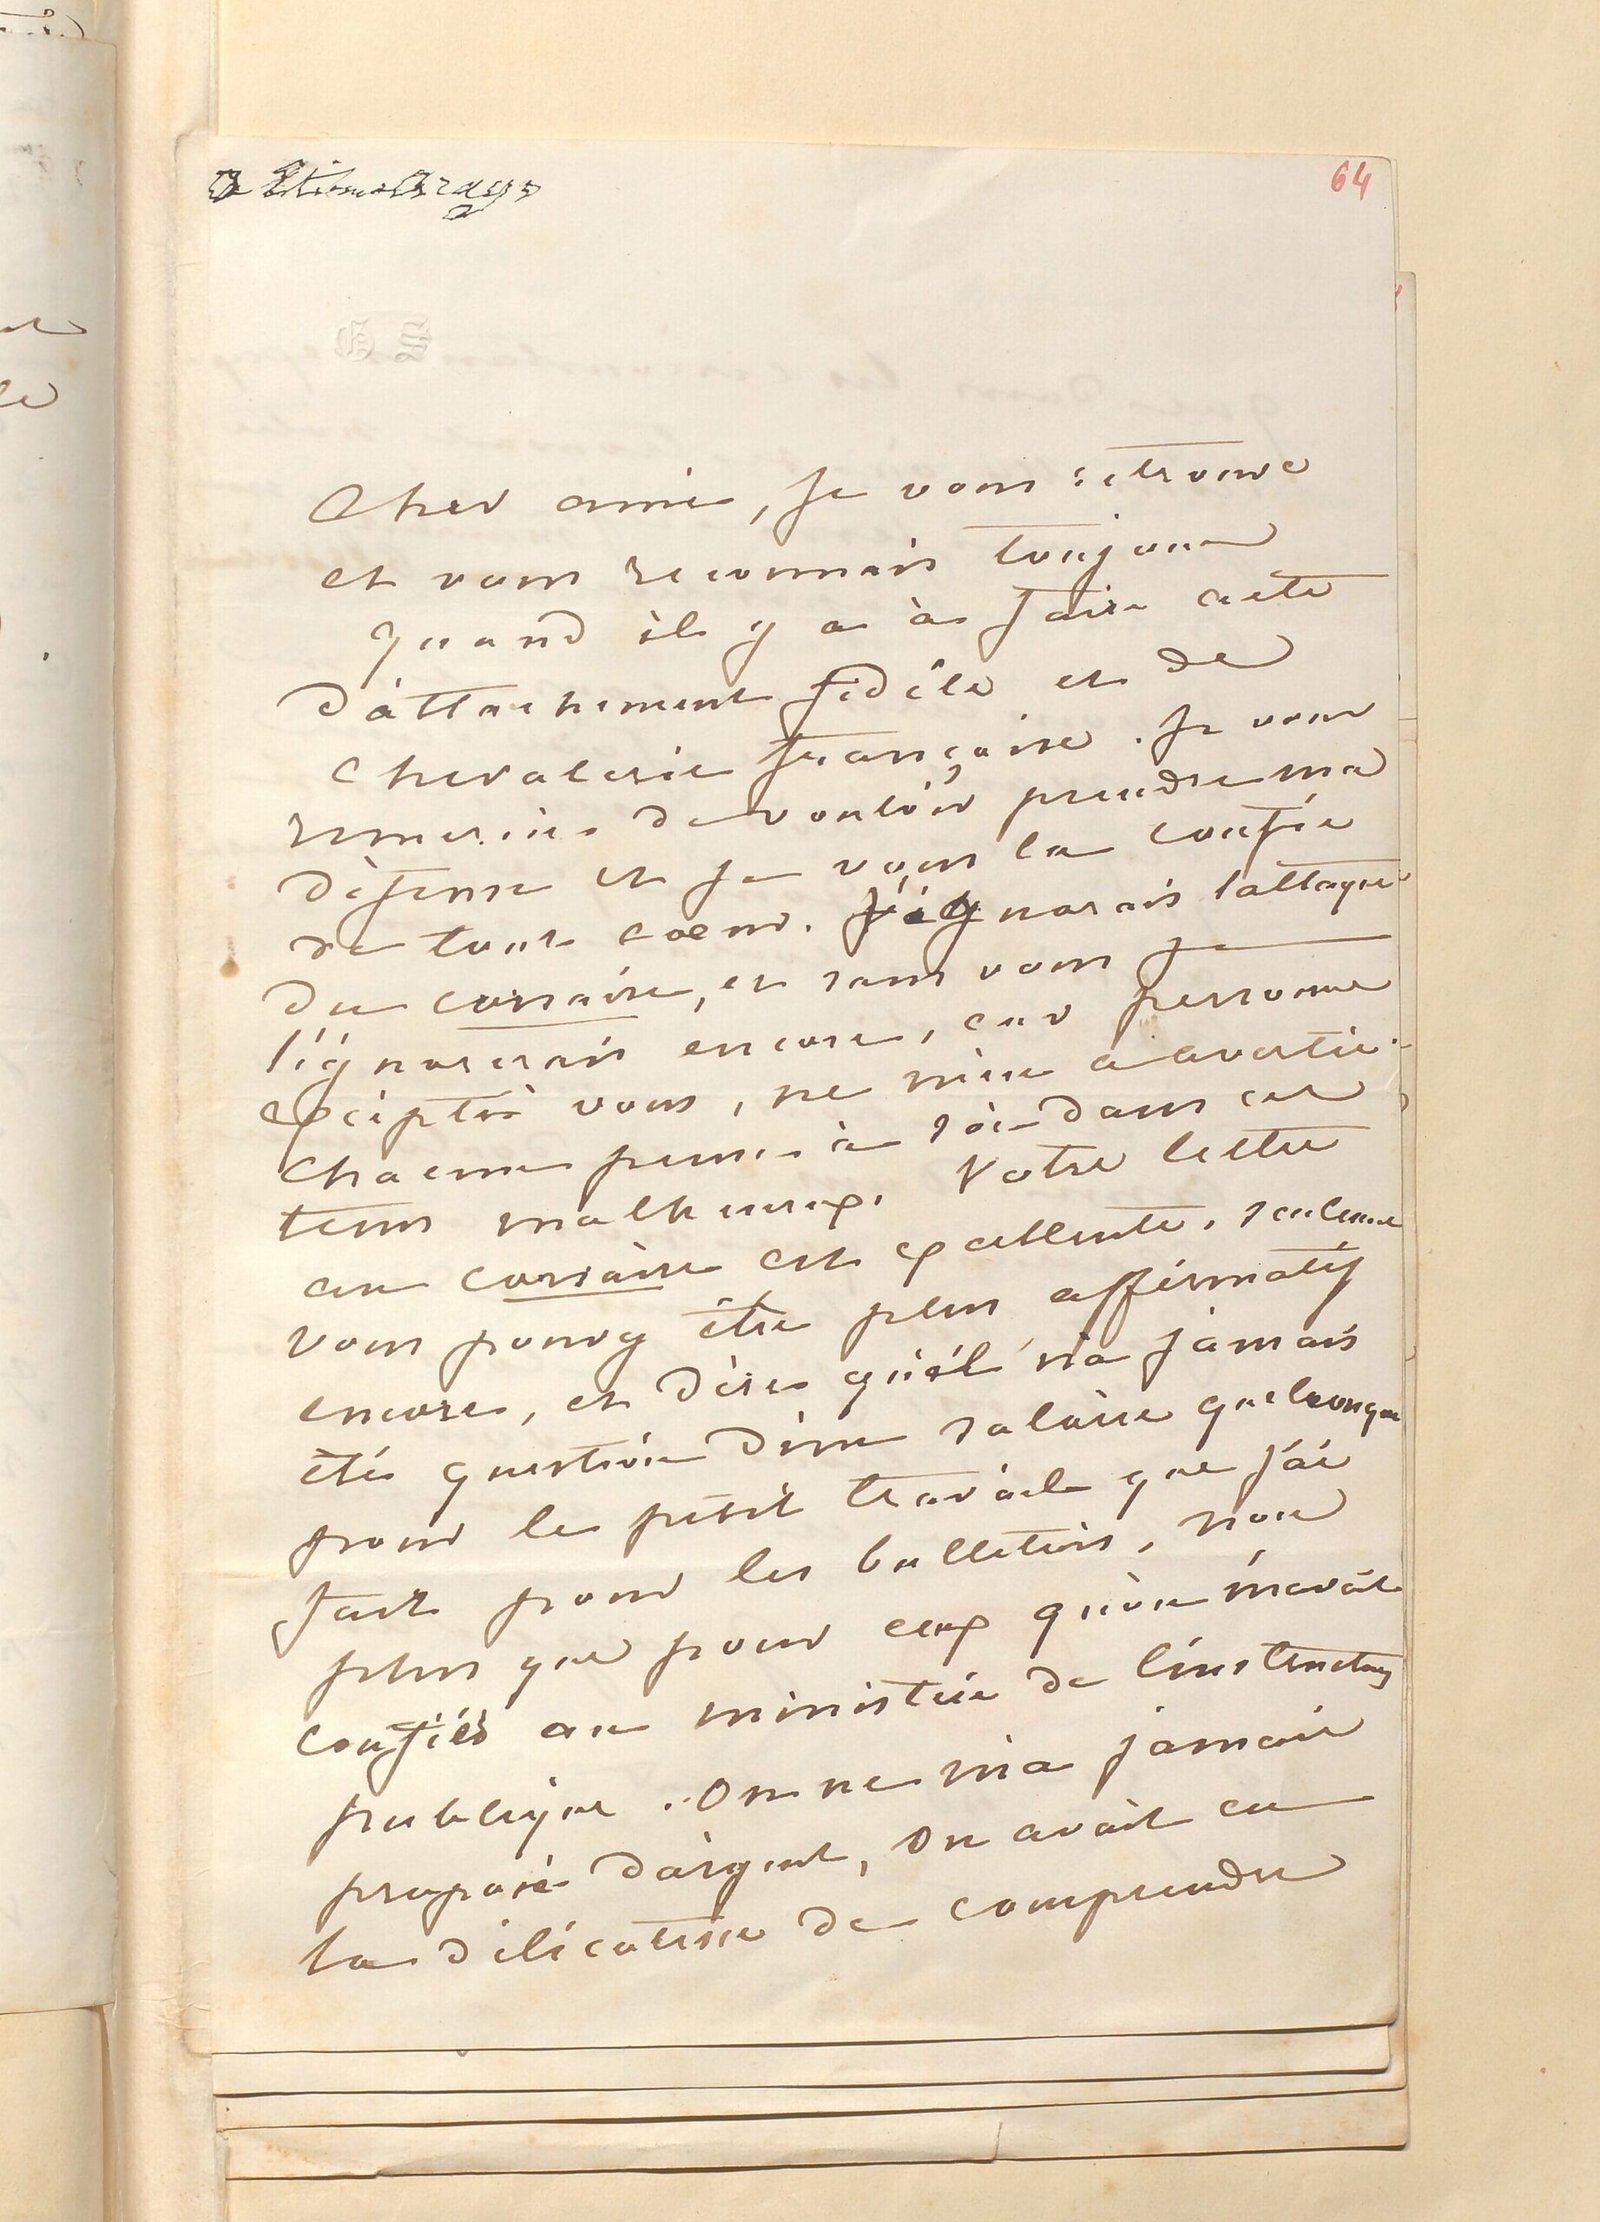 à Etienne Arago
64
G S
Cher ami, je vous retrouve
et vous reconnais toujours
quand il y a à faire acte
d'attachement fidèle et de
chevalerie française. Je vous
remercie de vouloir prendre ma
défense et je vous la confie
de tout cœur. J'ignorais l'attaque
du corsaire, et sans vous je
l'ignorerais encore, car personne
excepté vous, ne m'en a avertie.
Chacun pense à soi dans ces
tems malheureux. Votre lettre
au corsaire est excellente, seulement
vous pouvez être plus affirmatif
encore, et dire qu'il n'a jamais
été question d'un salaire quelconque
pour le petit travail que j'ai
fait pour les bulletins, non
plus que pour ceux qu'on m'avait
confiés au ministère de l'instruction
publique. On ne m'a jamais
proposé d'argent, on avait eu
la délicatesse de comprendre